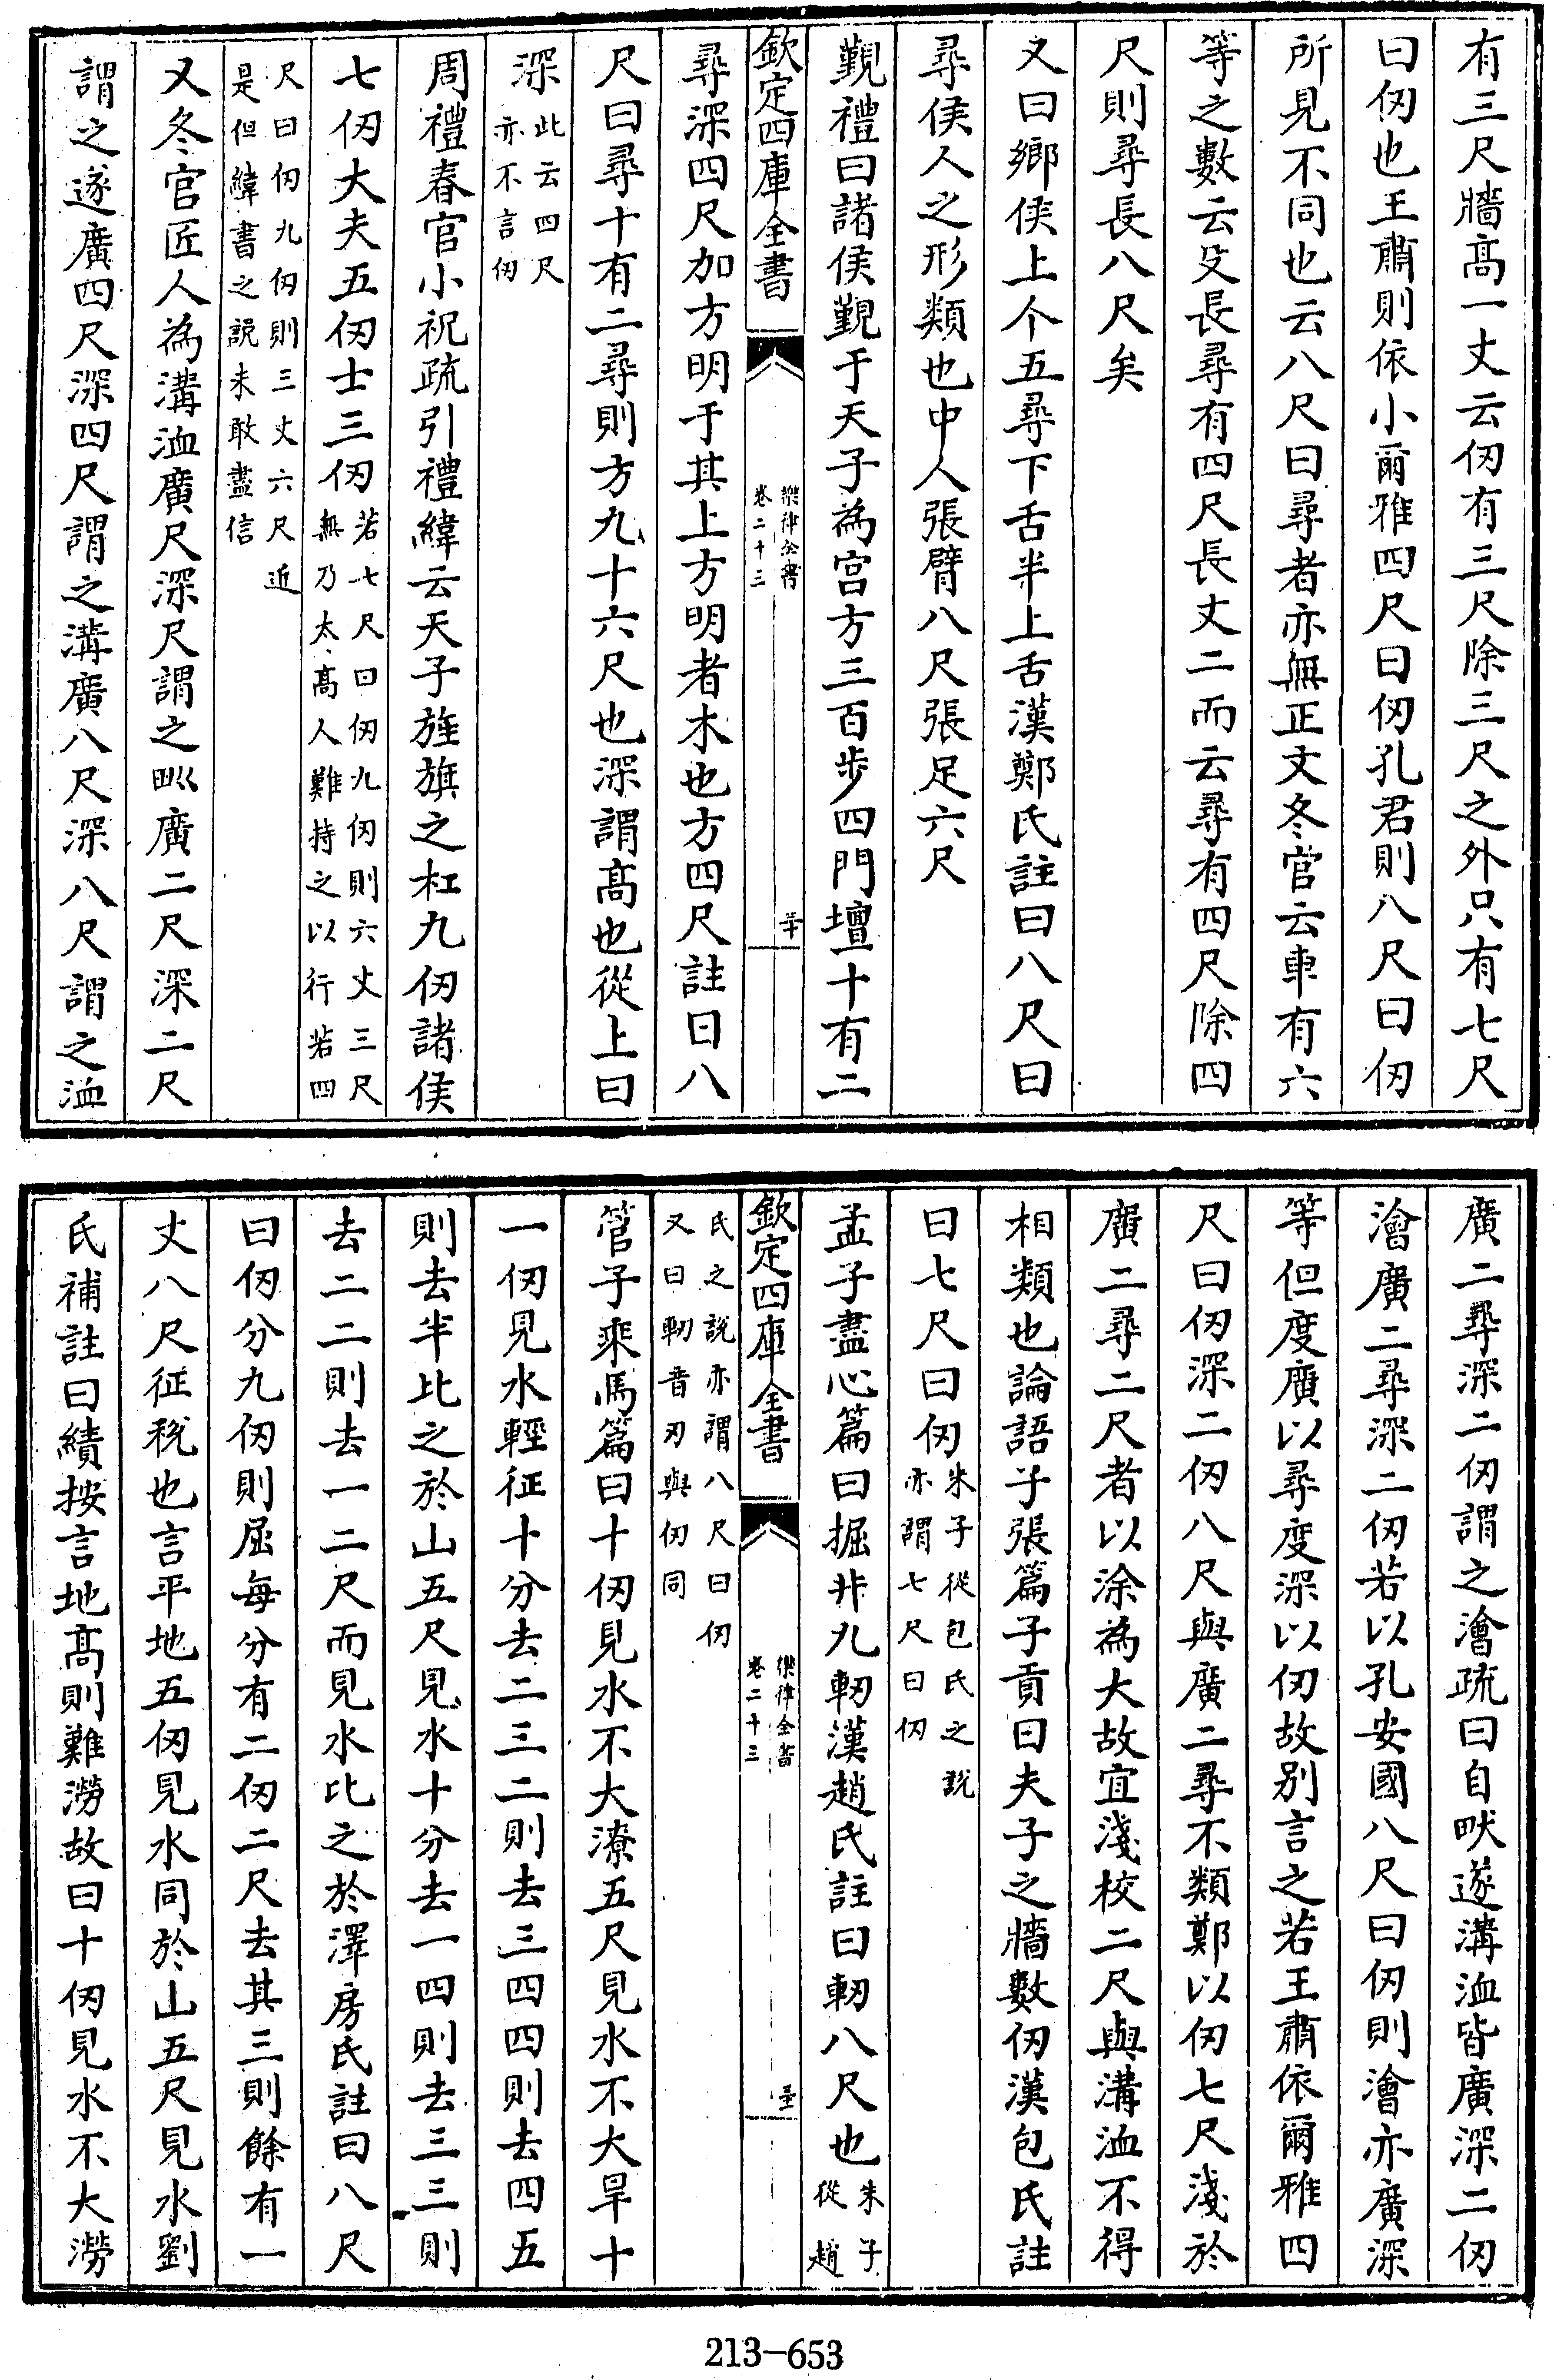 有三尺牆髙一丈云仞有三尺除三尺之外只有七尺
曰仞也王肅則依小爾雅四尺曰仞孔君則八尺曰仞
所見不同也云八尺曰尋者亦無正文冬官云車有六
等之數云殳長尋有四尺長丈二而云尋有四尺除四
尺則尋長八尺矣
又曰鄉侯上个五尋下舌半上舌漢鄭氏註曰八尺曰
尋侯人之形類也中人張臂八尺張足六尺
覲禮曰諸侯覲于天子為宫方三百步四門壇十有二
欽定四庫全書
樂律全書
卷二十三
三十
尋深四尺加方明于其上方明者木也方四尺註曰八
尺曰尋十有二尋則方九十六尺也深謂髙也從上曰
深此云四尺
亦不言仞
周禮春官小祝疏引禮緯云天子旌旗之杠九仞諸侯
七仞大夫五仞士三仞若七尺曰仞九仞則六丈三尺
無乃太髙人難持之以行若四
尺曰仞九仞則三丈六尺近
是但緯書之說未敢盡信
又冬官匠人為溝洫廣尺深尺謂之𤰝廣二尺深二尺
謂之遂廣四尺深四尺謂之溝廣八尺深八尺謂之洫
廣二尋深二仞謂之澮疏曰自畎遂溝洫皆廣深二仞
澮廣二尋深二仞若以孔安國八尺曰仞則澮亦廣深
等但度廣以尋度深以仞故别言之若王肅依爾雅四
尺曰仞深二仞八尺與廣二尋不類鄭以仞七尺淺於
廣二尋二尺者以涂為大故宜淺校二尺與溝洫不得
相類也論語子張篇子貢曰夫子之牆數仞漢包氏註
曰七尺曰仞朱子從包氏之説
亦謂七尺曰仞
孟子盡心篇曰掘井九軔漢趙氏註曰軔八尺也朱子
從趙
欽定四庫全書
樂律全書
卷二十三
氏之說亦謂八尺曰仞
又曰軔音刃與仞同
管子乘馬篇曰十仞見水不大潦五尺見水不大旱十
一仞見水輕征十分去二三二則去三四四則去四五
則去半比之於山五尺見水十分去一四則去三三則
去二二則去一二尺而見水比之於澤房氏註曰八尺
曰仞分九仞則屈每分有二仞二尺去其三則餘有一
丈八尺征稅也言平地五仞見水同於山五尺見水劉
氏補註曰績按言地髙則難澇故曰十仞見水不大澇
213-653